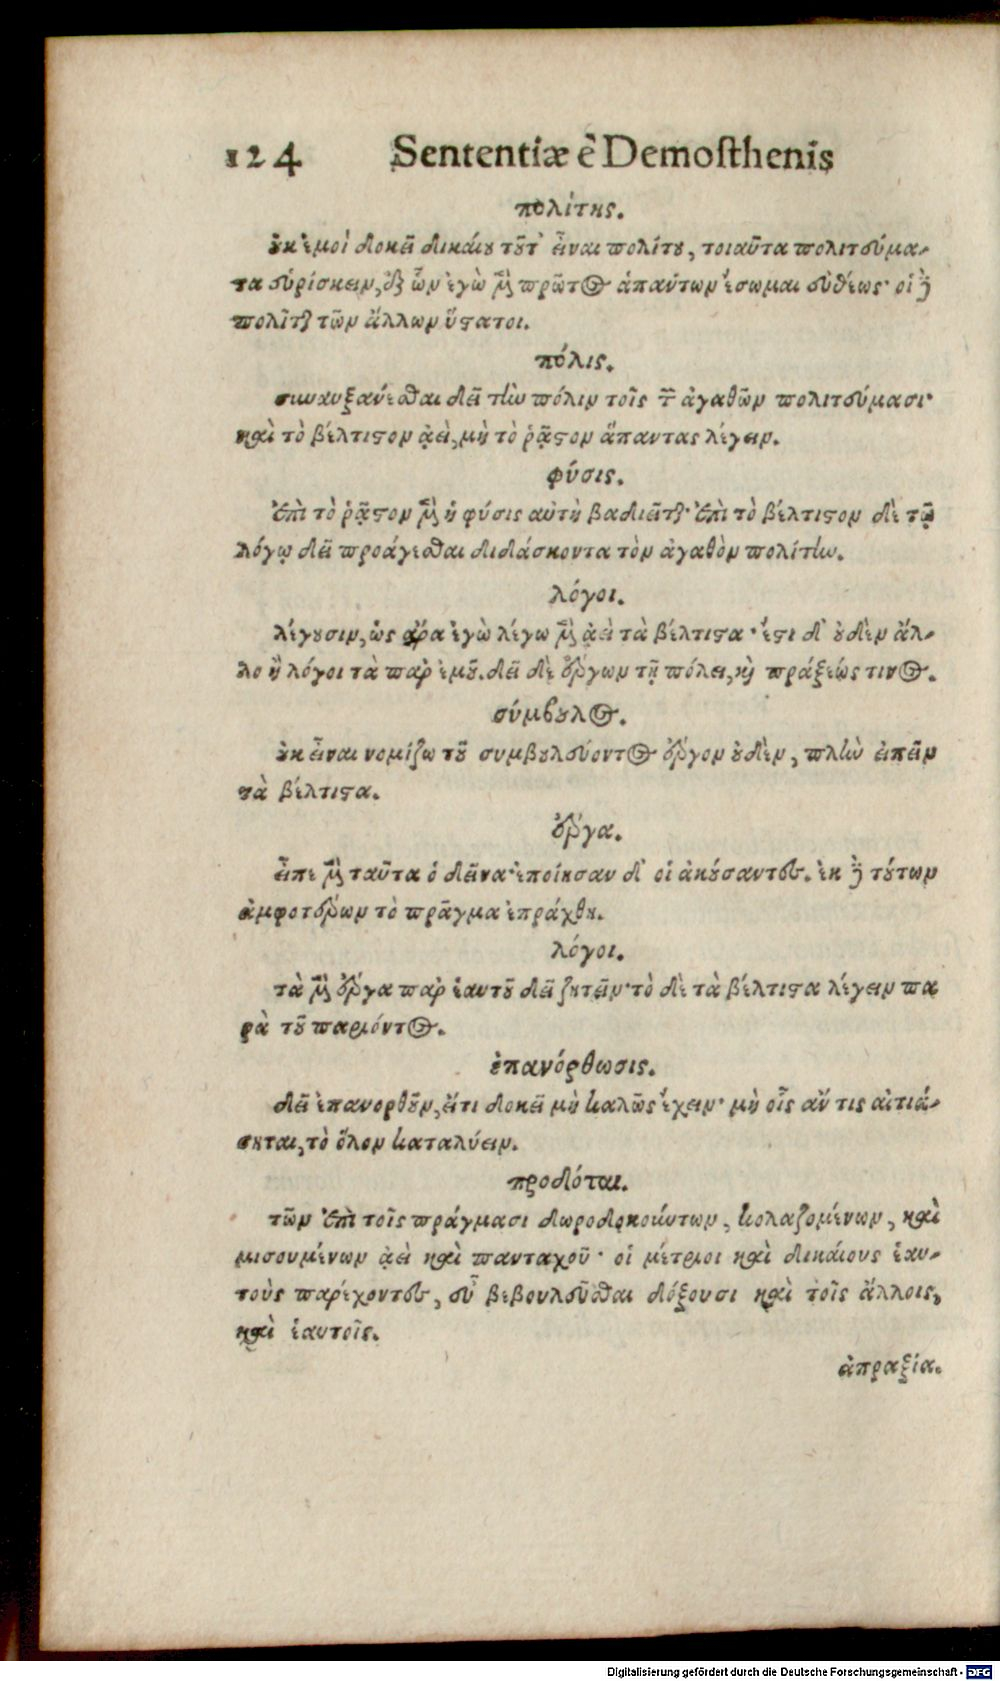 124 Sententiæ è Demosthenis
πολίτης.
οὐκ ἐμοὶ δοκεῖ δικαίου τοῦτ' εἶναι πολίτου, τοιαῦτα πολιτεύμα-
τα εὑρίσκειν, ἐξ ὧν ἐγὼ μὲν πρῶτος ἁπάντων ἔσωμαι εὐθέως· οἱ δὲ
πολῖται τῶν ἄλλων ὕστατοι.
πόλις.
συναυξάνεσθαι δεῖ τὴν πόλιν τοῖς τῶν ἀγαθῶν πολιτεύμασι·
καὶ τὸ βέλτιστον ἀεὶ, μὴ τὸ ῥᾷστον ἅπαντας λέγειν.
φύσις.
ἐπὶ τὸ ῥᾷστον μὲν ἡ φύσις αὐτὴ βαδιεῖται· ἐπὶ τὸ βέλτιστον δὲ τῷ
λόγῳ δεῖ προάγεσθαι διδάσκοντα τὸν ἀγαθὸν πολίτην.
λόγοι.
λέγουσιν, ὡς ἄρα ἐγὼ λέγω μὲν ἀεὶ τὰ βέλτιστα· ἔστι δ' οὐδὲν ἄλ-
λο ἢ λόγοι τὰ παρ' ἐμοῦ. δεῖ δὲ ἔργων τῇ πόλει, καὶ πράξεώς τινος.
σύμβουλος.
οὐκ εἶναι νομίζω τοῦ συμβουλεύοντος ἔργον οὐδὲν, πλὴν εἰπεῖν
τὰ βέλτιστα.
ἔργα.
εἶπε μὲν ταῦτα ὁ δεῖνα· ἐποίησαν δ' οἱ ἀκούσαντες. ἐκ δὲ τούτων
ἀμφοτέρων τὸ πρᾶγμα ἐπράχθη.
λόγοι.
τὰ μὲν ἔργα παρ' ἑαυτοῦ δεῖ ζητεῖν· τὸ δὲ τὰ βέλτιστα λέγειν πα
ρὰ τοῦ παριόντος.
ἐπανόρθωσις.
δεῖ ἐπανορθοῦν, εἴτι δοκεῖ μὴ καλῶς ἔχειν· μὴ οἷς ἄν τις αἰτιά-
σηται, τὸ ὅλον καταλύειν.
προδόται.
τῶν ἐπὶ τοῖς πράγμασι δωροδοκούντων, κολαζομένων, καὶ
μισουμένων ἀεὶ καὶ πανταχοῦ· οἱ μέτριοι καὶ δικαίους ἑαυ-
τοὺς παρέχοντες, εὖ βεβουλεῦσθαι δόξουσι καὶ τοῖς ἄλλοις,
καὶ ἑαυτοῖς.
ἀπραξία.
Digitalisierung gefördert durch die Deutsche Forschungsgemeinschaft - DFG